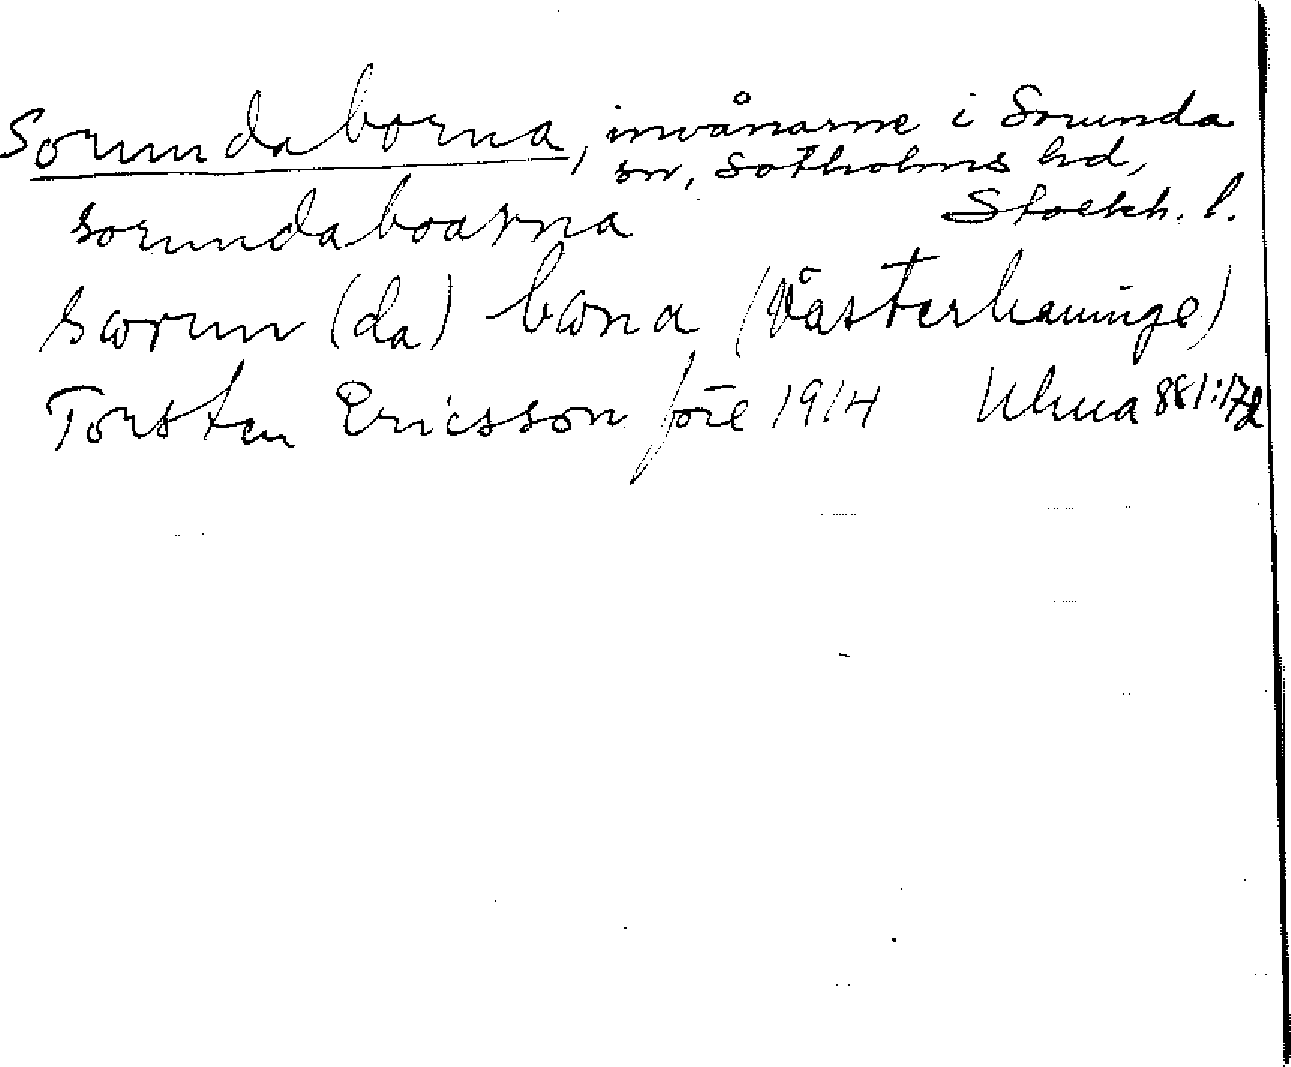 Sorundaborna, invånarne i Sorunda
sn, Sotholms hd,
Stockh. l.
sorundaboarna
(da) (Västerhaninge)
Torsten Ericsson före 1914 Ulma 881:172